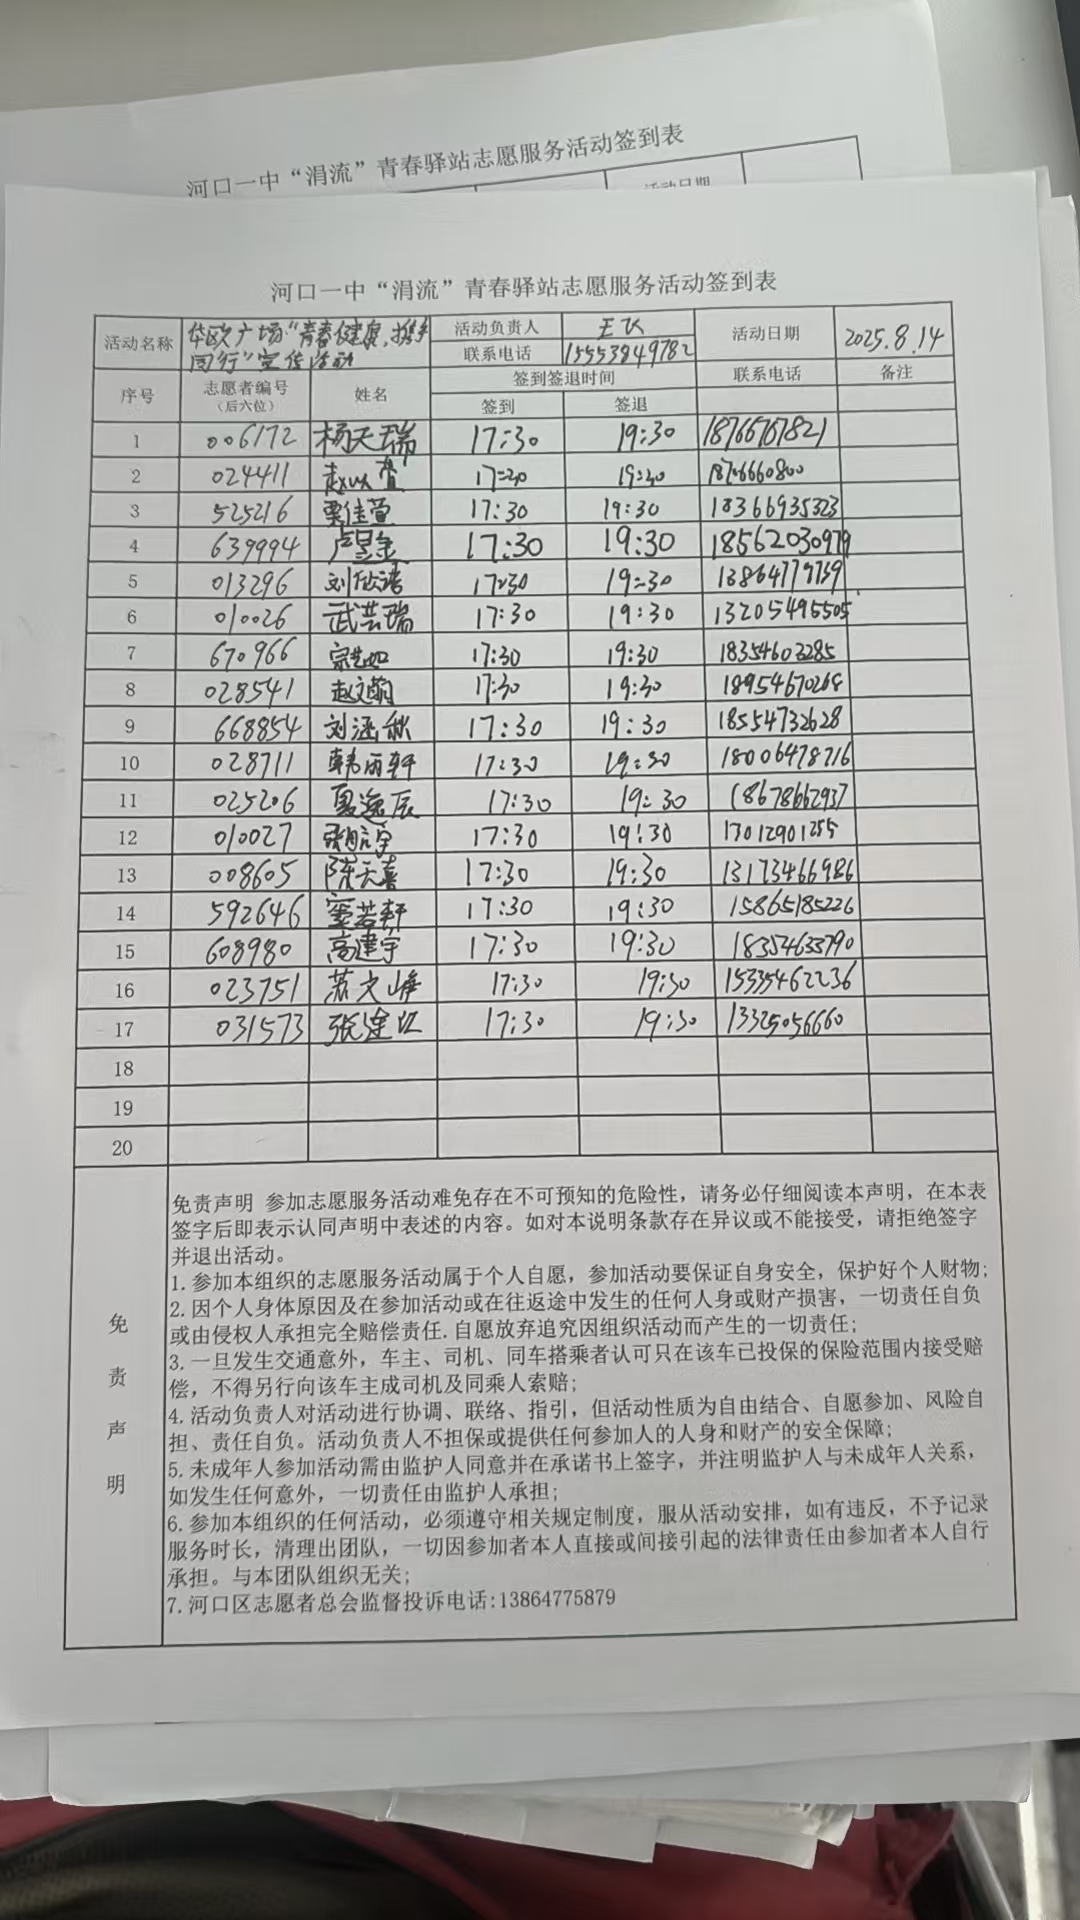 河口一中“涓流”青春驿站志愿服务活动签到表
活动日期
河口一中“涓流”青春驿站志愿服务活动签到表
活动名称 华欧广场“青春健康,携手同行”宣传活动 活动负责人 王 活动日期 2025.8.14
联系电话 15553849782
序号 志愿者编号（后六位） 姓名 签到签退时间 联系电话 备注
签到 签退
1 006172 杨天瑞 17:30 19:30 18766767821
2 024411 赵以萱 17:30 19:30 18706660800
3 525216 栗佳萱 17:30 19:30 18366935323
4 639994 卢昱金 17:30 19:30 18562030979
5 013296 刘欣浩 17:30 19:30 13864779739
6 010026 武芸瑞 17:30 19:30 13205495505
7 670966 17:30 19:30 18354603285
8 028541 赵文萌 17:30 19:30 18954670268
9 668854 刘涵秋 17:30 19:30 18554732628
10 028711 韩雨轩 17:30 19:30 18006478716
11 025206 夏逸辰 17:30 19:30 18678662937
12 010027 17:30 19:30 13012901255
13 008605 陈天喜 17:30 19:30 13173466986
14 592646 窦若轩 17:30 19:30 15865185226
15 608980 高建宇 17:30 19:30 18354633790
16 023751 苏文峰 17:30 19:30 15335462236
17 031573 张 17:30 19:30 13325056660
18
19
20
免责声明
免责声明 参加志愿服务活动难免存在不可预知的危险性，请务必仔细阅读本声明，在本表
签字后即表示认同声明中表述的内容。如对本说明条款存在异议或不能接受，请拒绝签字
并退出活动。
1. 参加本组织的志愿服务活动属于个人自愿，参加活动要保证自身安全，保护好个人财物;
2. 因个人身体原因及在参加活动或在往返途中发生的任何人身或财产损害，一切责任自负
或由侵权人承担完全赔偿责任. 自愿放弃追究因组织活动而产生的一切责任;
3. 一旦发生交通意外，车主、司机、同车搭乘者认可只在该车已投保的保险范围内接受赔
偿，不得另行向该车主成司机及同乘人索赔;
4. 活动负责人对活动进行协调、联络、指引，但活动性质为自由结合、自愿参加、风险自
担、责任自负。活动负责人不担保或提供任何参加人的人身和财产的安全保障;
5. 未成年人参加活动需由监护人同意并在承诺书上签字，并注明监护人与未成年人关系，
如发生任何意外，一切责任由监护人承担;
6. 参加本组织的任何活动，必须遵守相关规定制度，服从活动安排，如有违反，不予记录
服务时长，清理出团队，一切因参加者本人直接或间接引起的法律责任由参加者本人自行
承担。与本团队组织无关;
7. 河口区志愿者总会监督投诉电话:13864775879